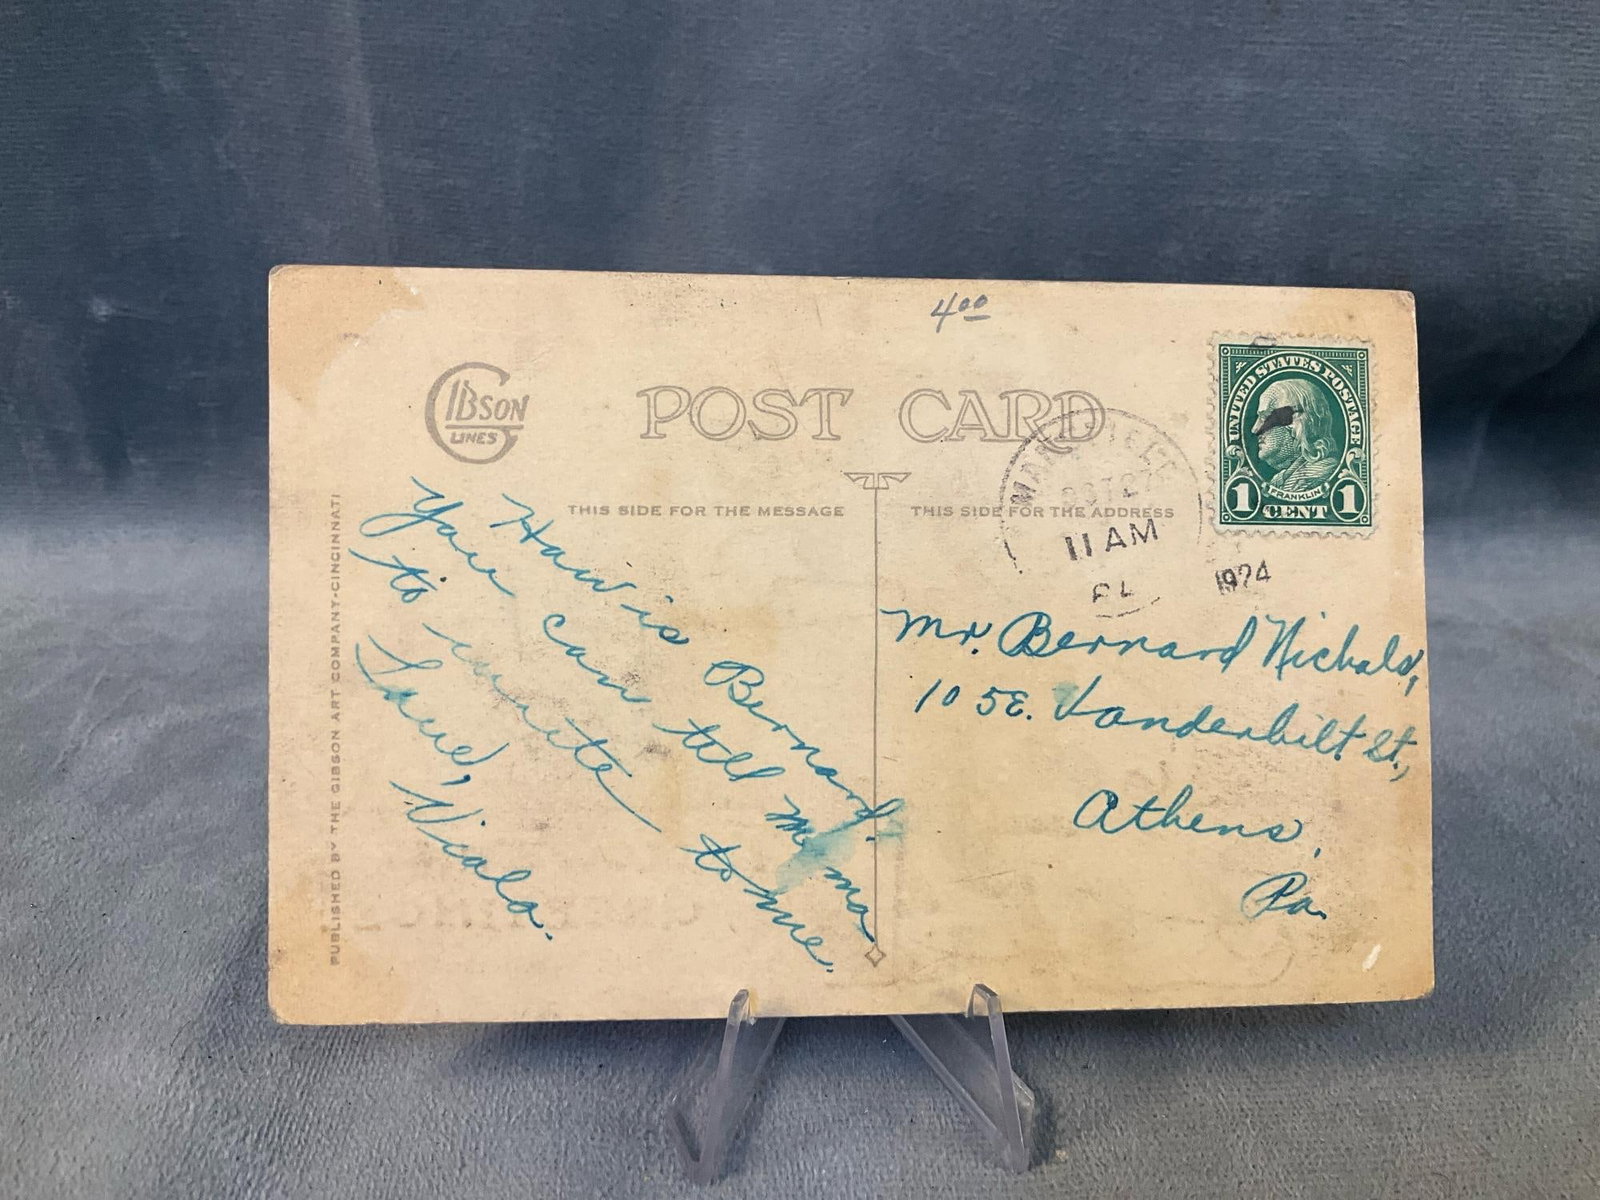 4.00
GIBSON
LINES
POST CARD
THIS SIDE FOR THE MESSAGE
THIS SIDE FOR THE ADDRESS
PUBLISHED BY THE GIBSON ART COMPANY-CINCINNATI
UNITED STATES POSTAGE
FRANKLIN
1 CENT 1
OCT 27
11 AM
1924
How is Bernard.
You can tell Mama
to write to me.
Love,
Viola.
Mr. Bernard Nichols,
105 E. Vanderbilt St.,
Athens,
Pa.